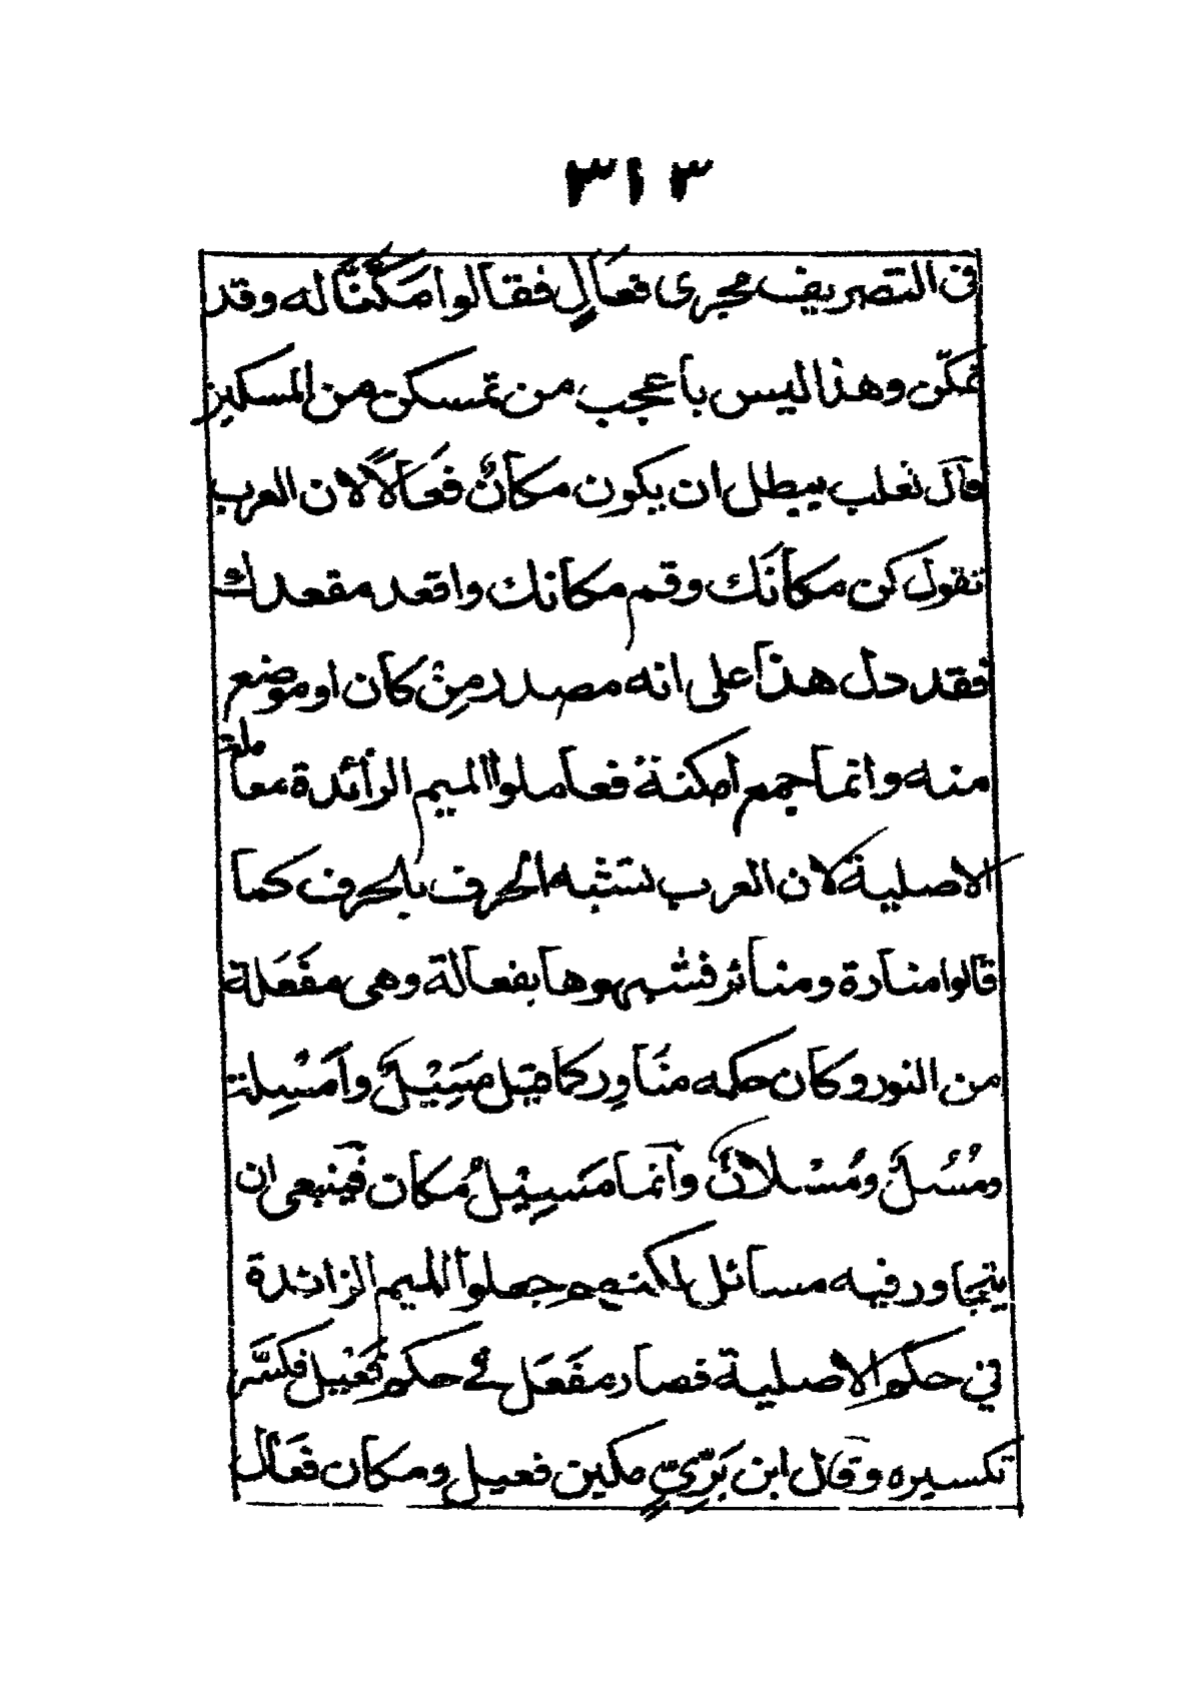 ٣١٣
فى التصريف مجرى فعَالٍ فقالوا مَكَّنّا له وقد
تمكّن وهذا ليس باعجب من تمسكن من المسكين
قال ثعلب يبطل ان يكون مكانٌ فَعَالًا لان العرب
تقول كن مكانَك وقم مكانك واقعد مقعدك
فقد دل هذا على انه مصدر مِنْ كان او موضع
منه وانما جمع امكنة فعاملوا الميم الزائدة معاملة
الاصلية لان العرب تشبه الحرف بالحرف كما
قالوا منارة ومنائر فشبهوها بفعالة وهى مفْعَلة
من النور وكان حكمه مَنَاوِر كما قيل مَسِيْلٌ وأَمْسِلة
ومُسُلٌ ومُسْلانٌ وانما مَسِيْلٌ مُكان فينبغى ان
يتجاور فيه مسائل لكنهم جعلوا الميم الزائدة
في حكم الاصلية فصار مفْعَل فى حكم فَعْيل فكسّر
تكسيره وقال ابن بَرِّيٍّ مكين فعيل ومكان فعَال